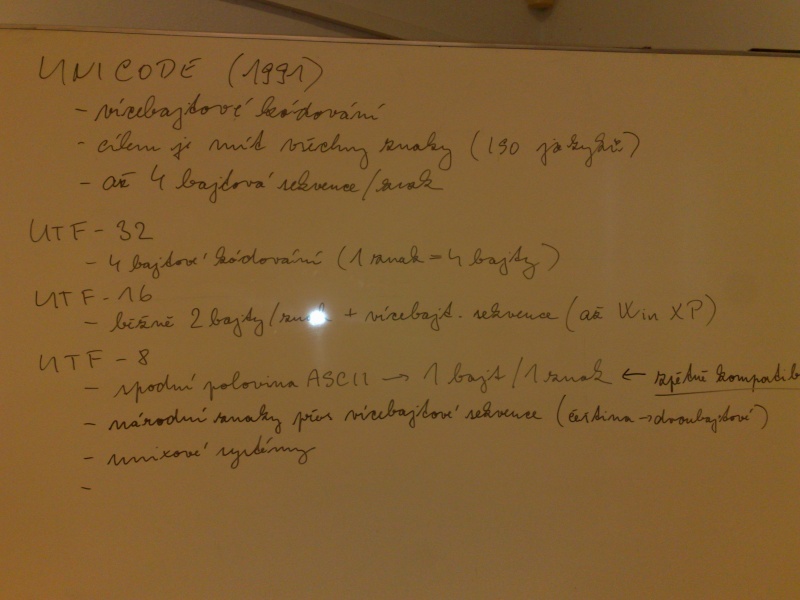 UNICODE (1991)
- vícebajtové kódování
- cílem je mít všechny znaky (150 jazyků)
- až 4 bajtová sekvence/znak
UTF-32
- 4 bajtové kódování (1 znak = 4 bajty)
UTF-16
- běžně 2 bajty/znak + vícebajt. sekvence (až Win XP)
UTF-8
- spodní polovina ASCII → 1 bajt/1 znak ← zpětně kompatib
- národní znaky přes vícebajtové sekvence (čeština → dvoubajtové)
- unixové systémy
-